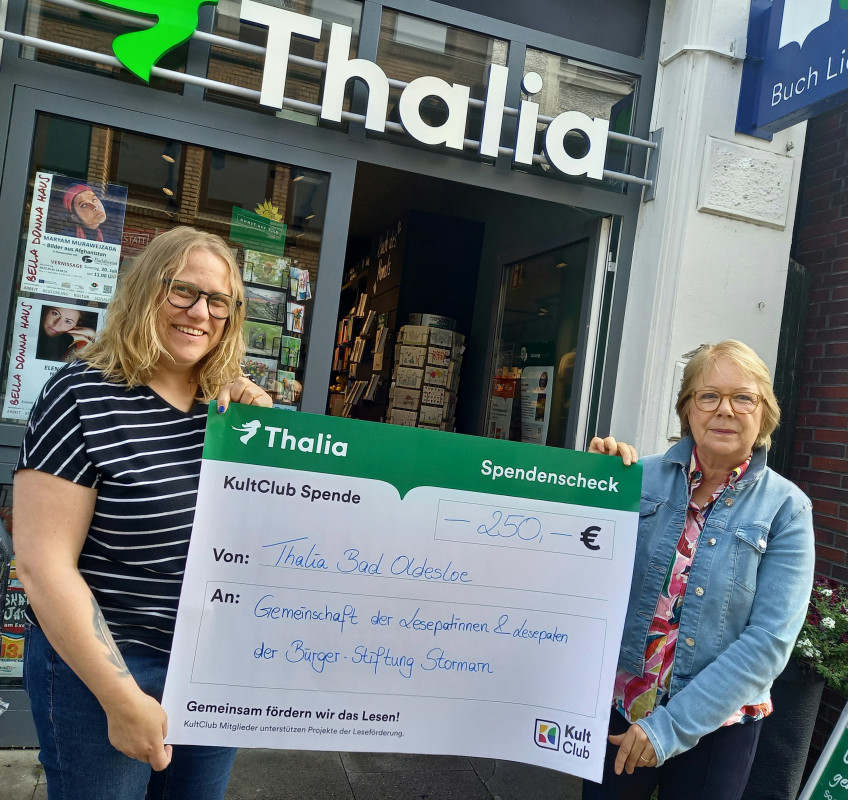 Thalia
Buch Lie
BELLA DONNA HAUS
MARYAM MURAWEJZADA
Bilder aus Afghanistan
VERNISSAGE
BELLA DONNA HAUS
Thalia
Spendenscheck
KultClub Spende
– 250,– €
Von: Thalia Bad Oldesloe
An: Gemeinschaft der Lesepatinnen & Lesepaten
der Bürger-Stiftung Stormarn
Gemeinsam fördern wir das Lesen!
KultClub Mitglieder unterstützen Projekte der Leseförderung.
Kult
Club